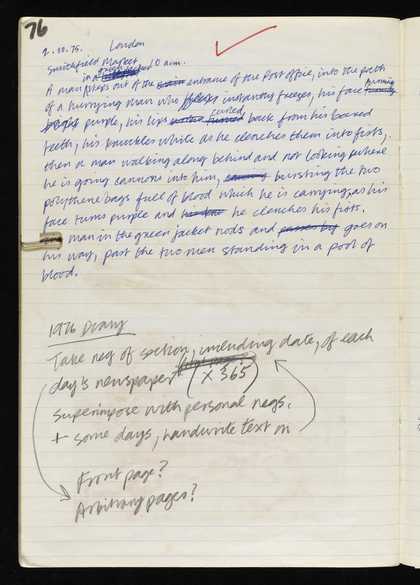 76
2.10.75. London
Smithfield Market 10 a.m.
in a green jacket
A man steps out of the main entrance of the Post Office, into the path
of a hurrying man who instantly freezes, his face turning
bright purple, his lips curled back from his bared
teeth, his knuckles white as he clenches them into fists,
then a man walking along behind and not looking where
he is going cannons into him, bursting the two
polythene bags full of blood which he is carrying, as his
face turns purple and he clenches his fists.
man in the green jacket nods and goes on
his way, past the two men standing in a pool of
blood.
1976 Diary
Take neg of section, including date, of each
day's newspaper (x 365)
Superimpose with personal negs.
+ some days, handwrite text on
Front page?
Arbitrary pages?